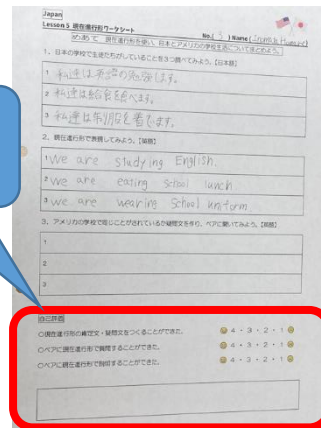 Japan
Lesson 5 現在進行形ワークシート
No.( 5 ) Name (
めあて 現在進行形を使い、日本とアメリカの学校生活についてまとめよう。
1、日本の学校で生徒たちがしていることを3つ調べてみよう。【日本語】
1 私達は英語の勉強します。
2 私達は給食を食べます。
3 私達は制服を着ています。
2、現在進行形で表現してみよう。【英語】
1 We are studying English.
2 We are eating school lunch
3 We are wearing school uniform
3、アメリカの学校で同じことがされているか疑問文を作り、ペアに聞いてみよう。【英語】
1
2
3
自己評価
○現在進行形の肯定文・疑問文をつくることができた。 4・3・2・1
○ペアに現在進行形で質問することができた。 4・3・2・1
○ペアに現在進行形で回答することができた。 4・3・2・1